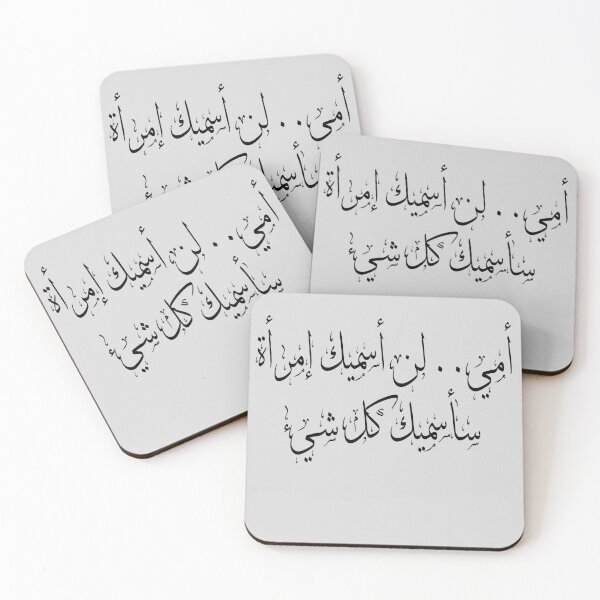 أمي.. لن أسميك إمرأة
سأسميك كل شيء
أمي.. لن أسميك إمرأة
سأسميك كل شيء
أمي.. لن أسميك إمرأة
سأسميك كل شيء
أمي.. لن أسميك إمرأة
سأسميك كل شيء